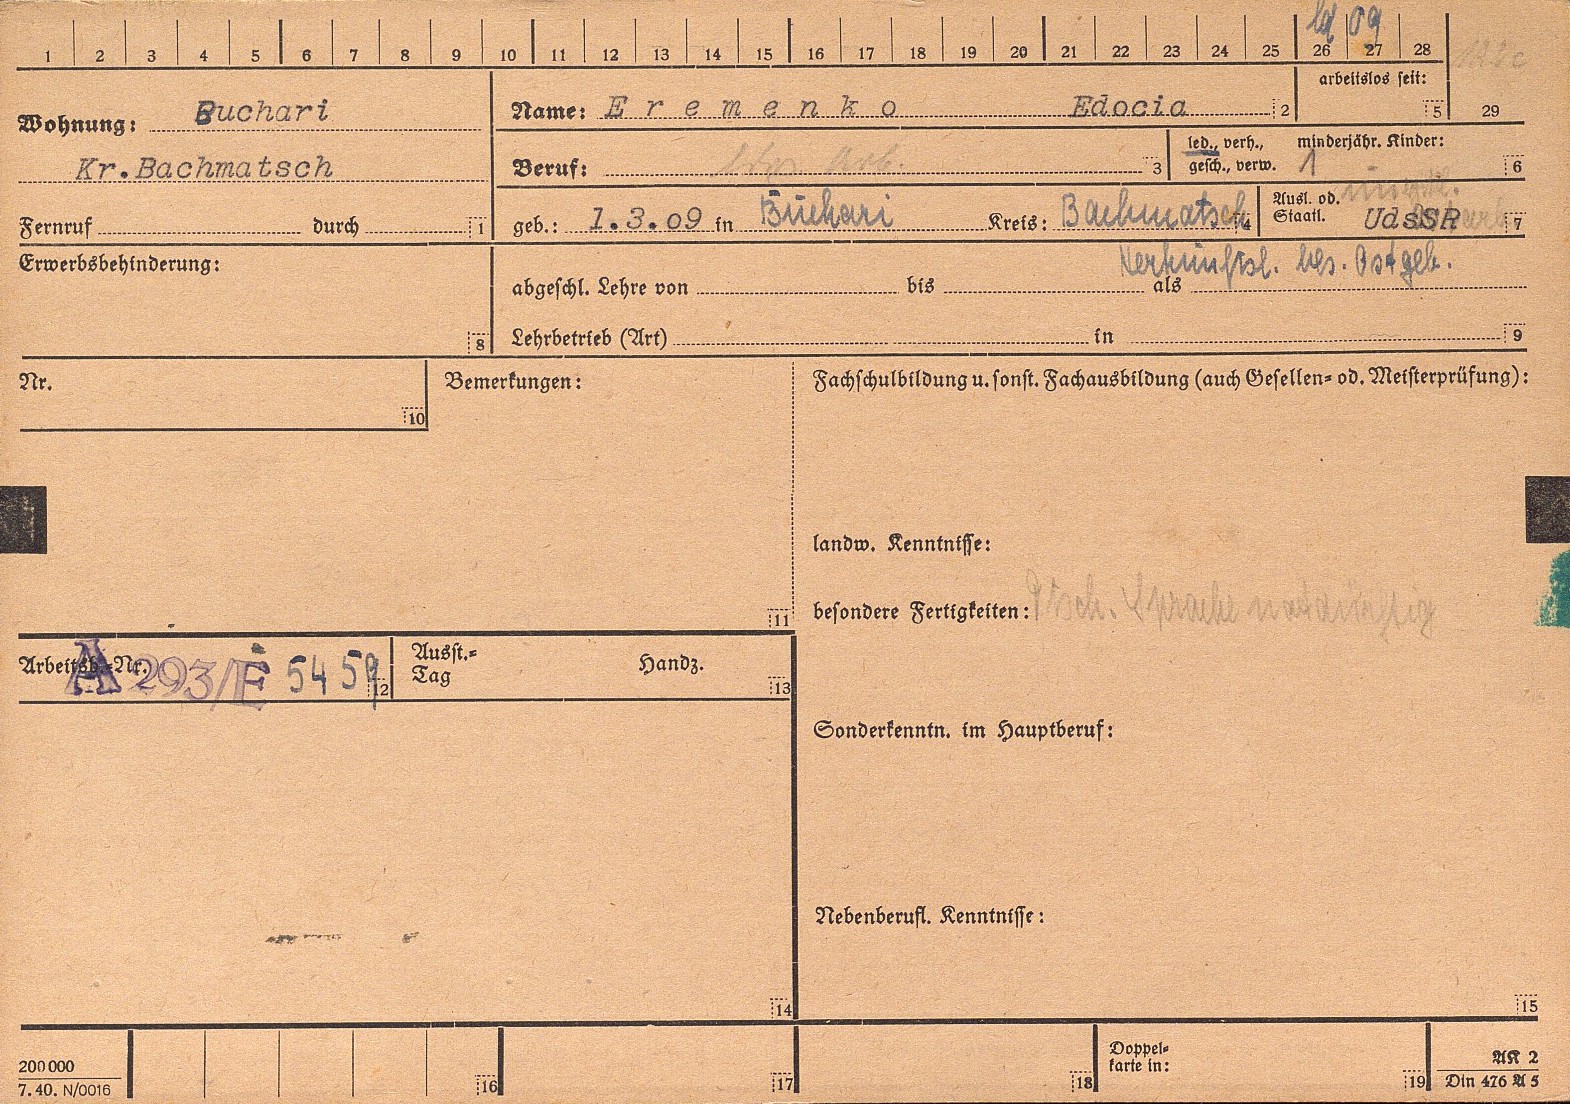 ld 09
1 2 3 4 5 6 7 8 9 10 11 12 13 14 15 16 17 18 19 20 21 22 23 24 25 26 27 28
Wohnung: Buchari
Kr. Bachmatsch
Fernruf durch 1
Name: Eremenko Edocia 2
arbeitslos seit: 5
29
Beruf: Arb. 3
led., verh., gesch., verw.
minderjähr. Kinder: 1 6
geb.: 1.3.09 in Buchari Kreis: Bachmatsch 4
Ausl. od. Staatl. UdsSR 7
Herkunftsl. bes. Ostgeb.
Erwerbsbehinderung: 8
abgeschl. Lehre von bis als
Lehrbetrieb (Art) in 9
Nr. 10
Bemerkungen: 11
Fachschulbildung u. sonst. Fachausbildung (auch Gesellen- od. Meisterprüfung):
landw. Kenntnisse:
besondere Fertigkeiten: Dtsch. Sprache notdürftig
Arbeitsb.-Nr. A 293/E 5459 12
Ausst.-Tag Handz. 13
Sonderkenntn. im Hauptberuf:
Nebenberufl. Kenntnisse:
14
15
200 000
7. 40. N/0016
16
17
18
Doppel-
karte in: 19
AK 2
Din 476 A 5